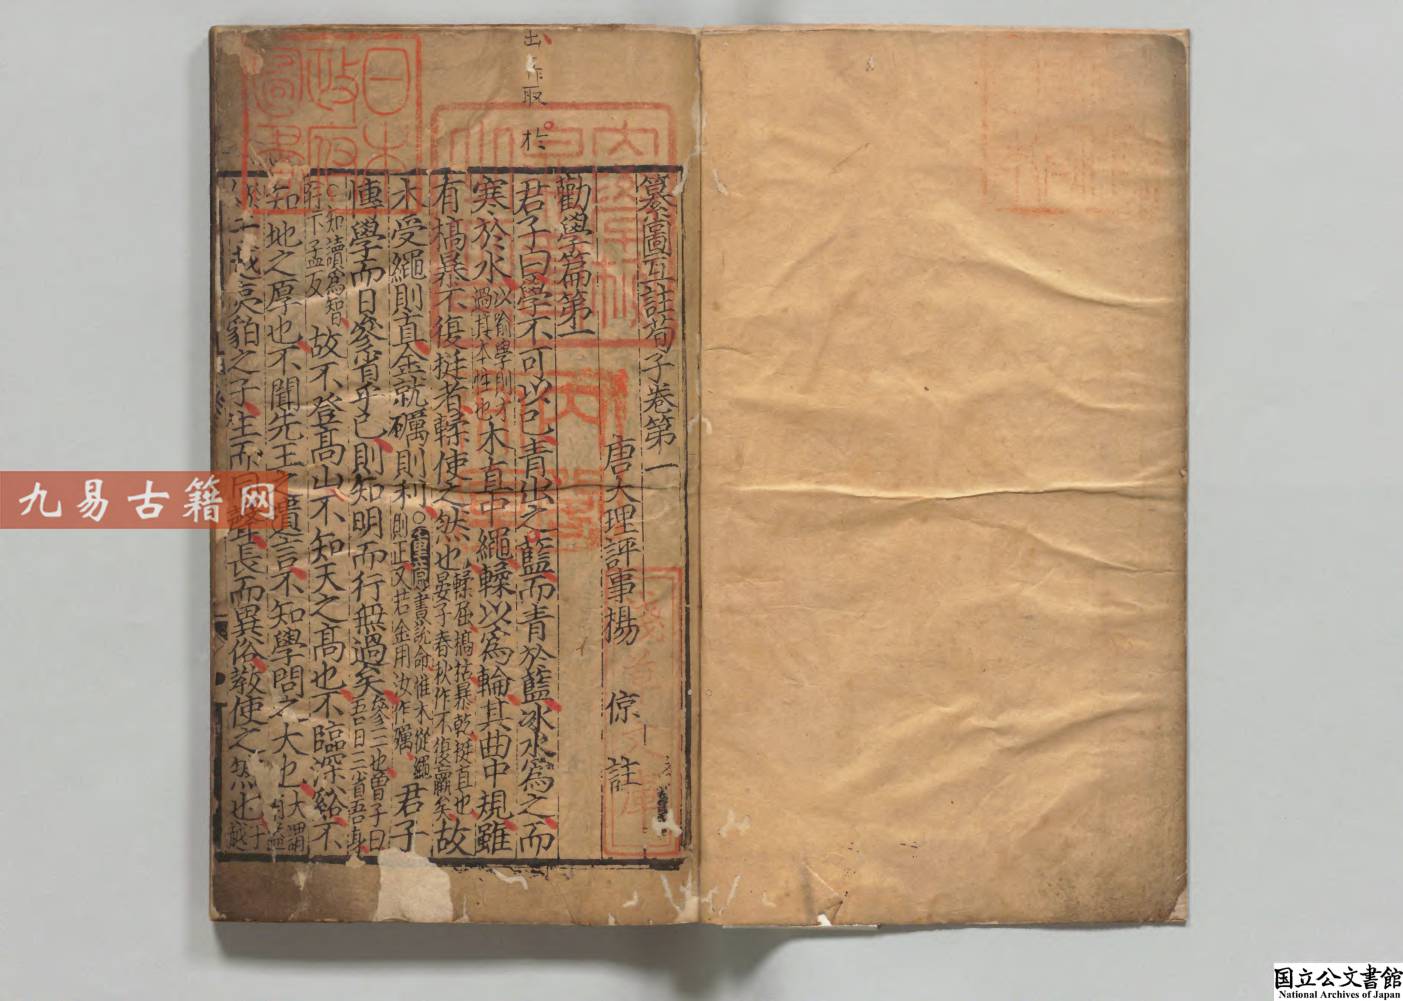 纂圖互註荀子卷第一
唐大理評事楊 倞 註
勸學篇第一
君子曰學不可以已青出之藍而青於藍冰水爲之而
寒於水以喻學則才過其本性也木直中繩輮以爲輪其曲中規雖
有槁暴不復挺者輮使之然也輮屈槁枯暴乾挺直也晏子春秋作不復羸矣故
木受繩則直金就礪則利○重意書說命惟木從繩則正又若金用汝作礪君子
博學而日參省乎己則知明而行無過矣參三也曾子曰吾日三省吾身
○知讀爲智行下孟反故不登高山不知天之高也不臨深谿不
知地之厚也不聞先王之遺言不知學問之大也大謂有益
於人
越夷貉之子生而同聲長而異俗敎使之然也于越
出作取 於
日本政府圖書
九易古籍网
国立公文書館
National Archives of Japan